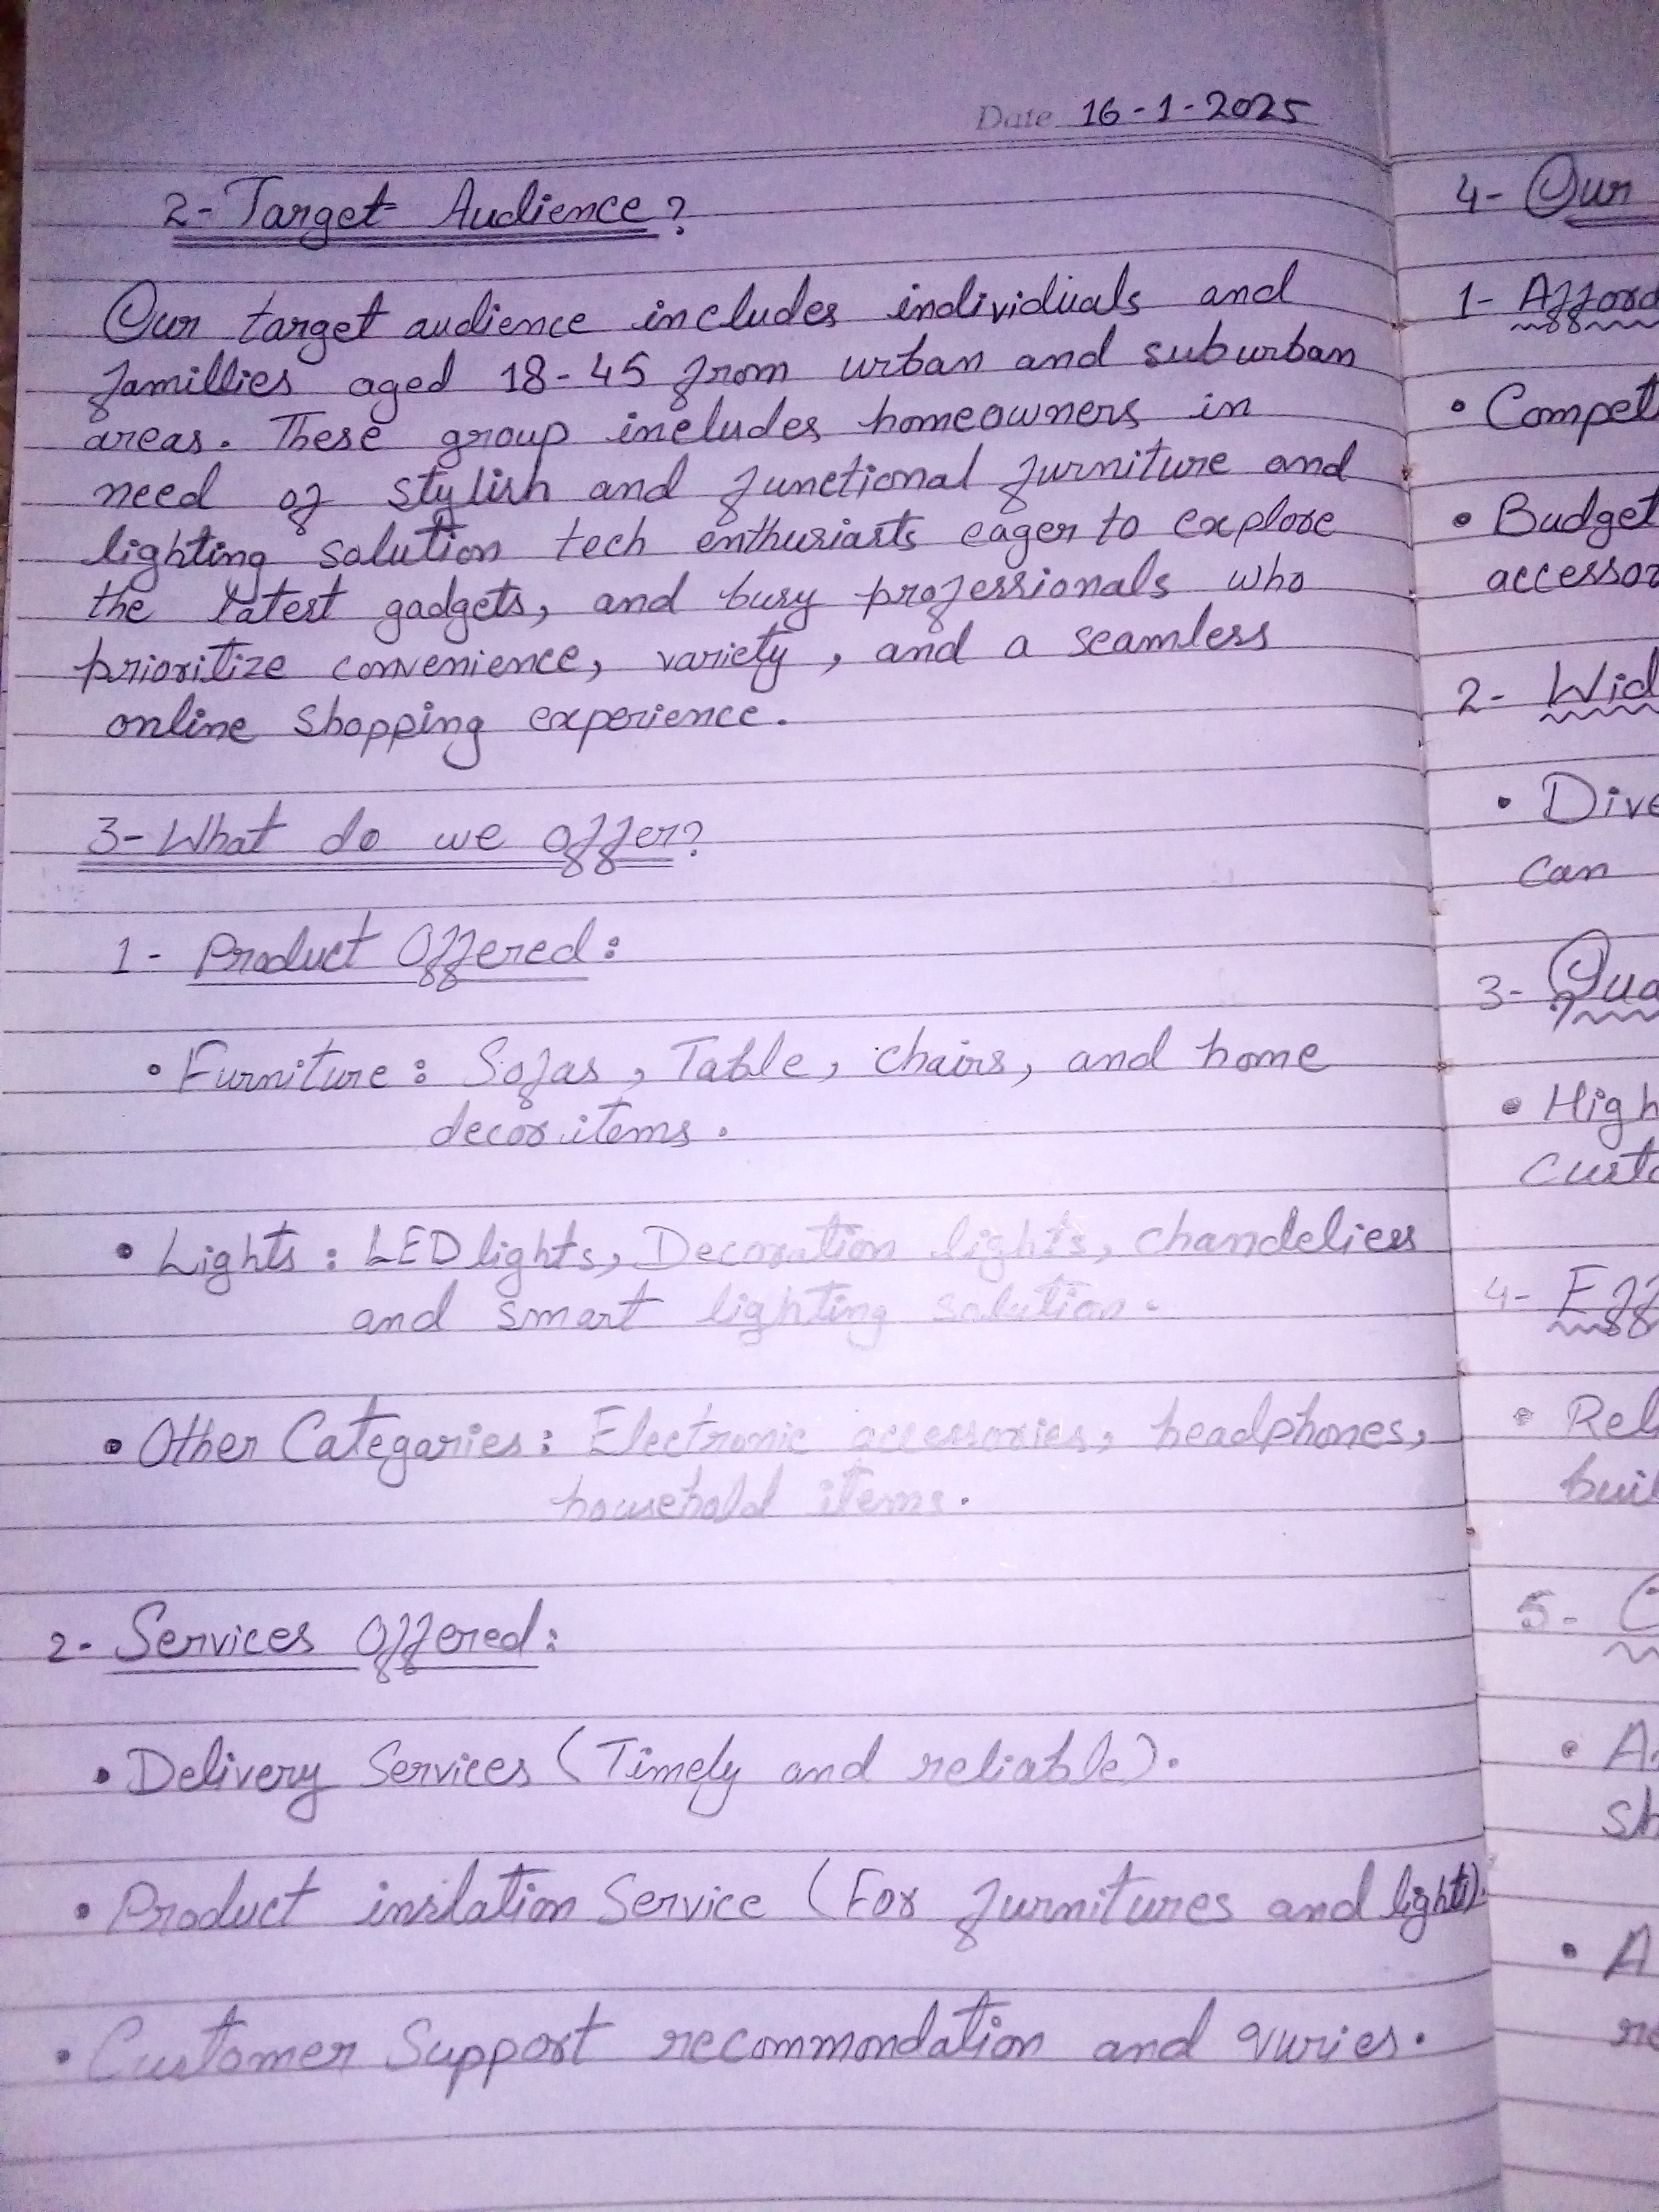 Date 16-1-2025
2- Target Audience?
Our target audience includes individuals and
famillies aged 18-45 from urban and suburban
areas. These group includes homeowners in
need of stylish and functional furniture and
lighting solution tech enthusiasts eager to explore
the latest gadgets, and busy professionals who
prioritize convenience, variety, and a seamless
online shopping experience.
3- What do we offer?
1- Product Offered:
• Furniture: Sofas, Table, chairs, and home
decor items.
• Lights: LED lights, Decoration lights, chandeliers
and smart lighting solution.
• Other Categories: Electronic accessories, headphones,
household items.
2- Services Offered:
• Delivery Services (Timely and reliable).
• Product inslation Service (For furnitures and lights).
• Customer Support recommondation and quries.
4- Our
1- Afford
• Compet
• Budget
accessor
2- Wid
• Dive
can
3- Qua
• High
custo
4- Eff
• Rel
buil
5- C
• A
sh
• A
re